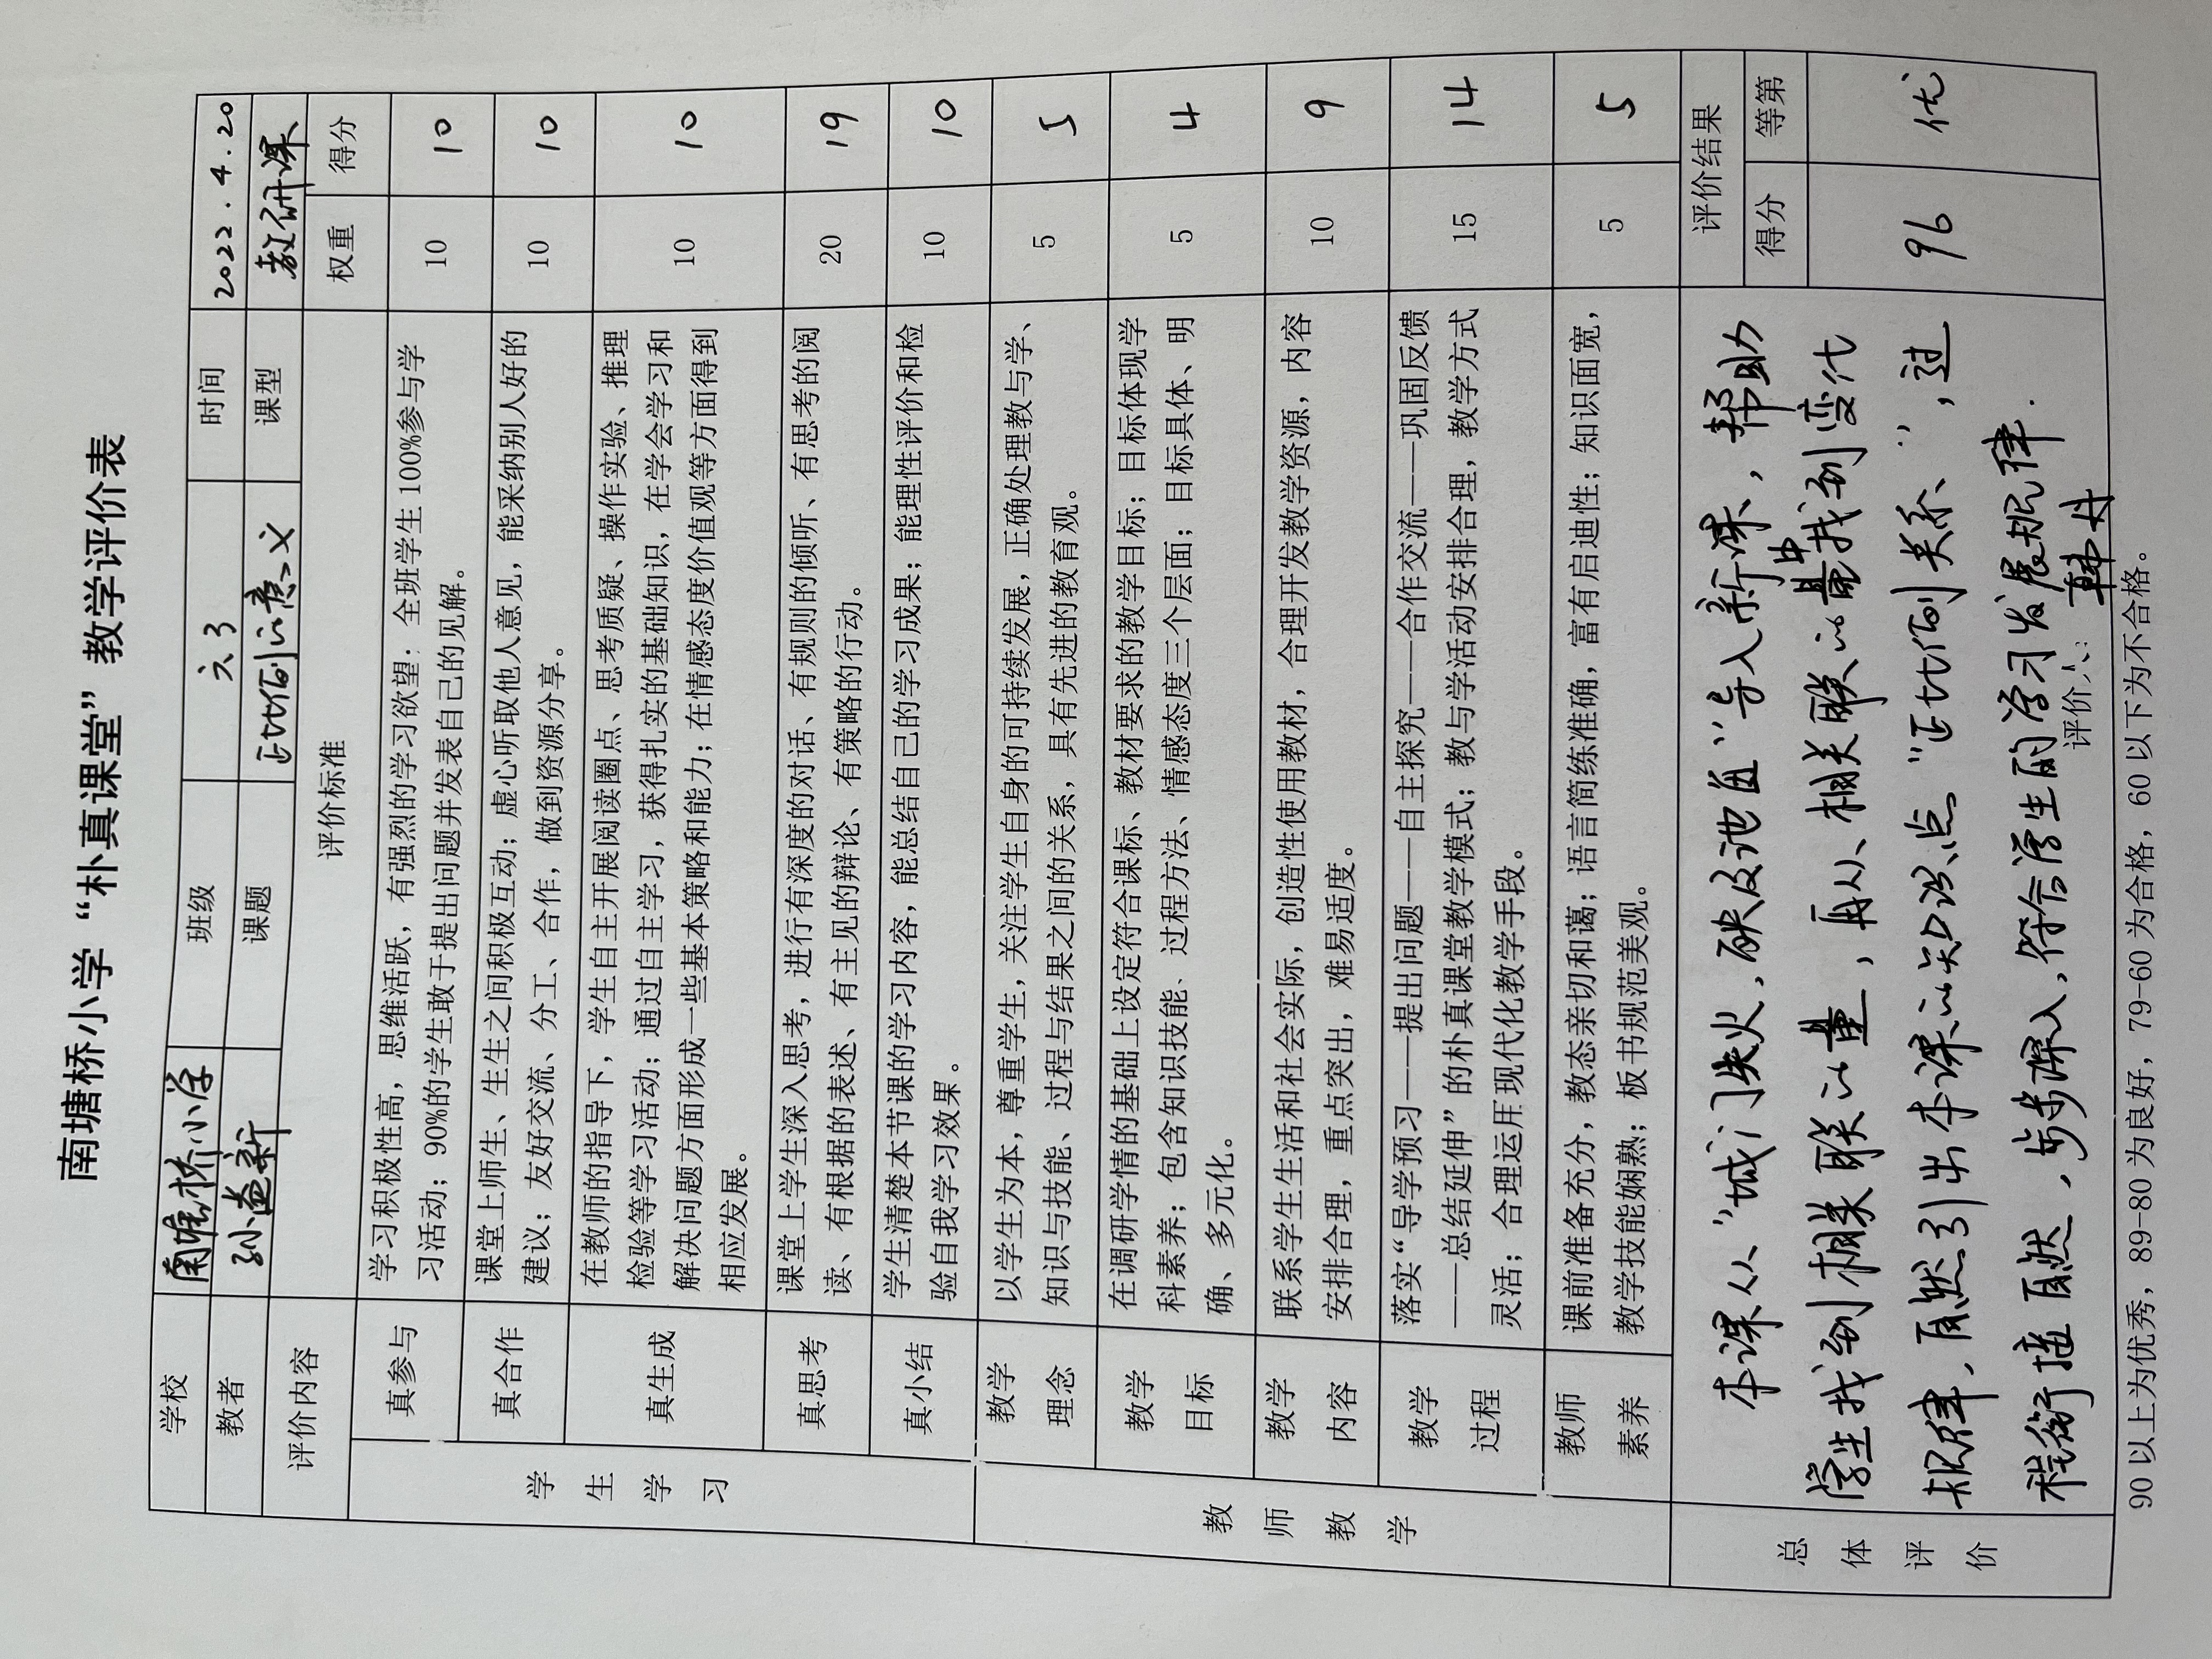 南塘桥小学“朴真课堂”教学评价表
学校 南塘桥小学 班级 六3 时间 2022.4.20
教者 孙益新 课题 正比例的意义 课型 教研课
评价内容 评价标准 权重 得分
学生学习
真参与 学习积极性高，思维活跃，有强烈的学习欲望：全班学生100%参与学 10 10
习活动；90%的学生敢于提出问题并发表自己的见解。
真合作 课堂上师生、生生之间积极互动；虚心听取他人意见，能采纳别人好的 10 10
建议；友好交流、分工、合作，做到资源分享。
真生成 在教师的指导下，学生自主开展阅读圈点、思考质疑、操作实验、推理 10 10
检验等学习活动；通过自主学习，获得扎实的基础知识，在学会学习和
解决问题方面形成一些基本策略和能力；在情感态度价值观等方面得到
相应发展。
真思考 课堂上学生深入思考，进行有深度的对话、有规则的倾听、有思考的阅 20 19
读、有根据的表述、有主见的辩论、有策略的行动。
真小结 学生清楚本节课的学习内容，能总结自己的学习成果；能理性评价和检 10 10
验自我学习效果。
教师教学
教学理念 以学生为本，尊重学生，关注学生自身的可持续发展，正确处理教与学、 5 5
知识与技能、过程与结果之间的关系，具有先进的教育观。
教学目标 在调研学情的基础上设定符合课标、教材要求的教学目标；目标体现学 5 4
科素养；包含知识技能、过程方法、情感态度三个层面；目标具体、明
确、多元化。
教学内容 联系学生生活和社会实际，创造性使用教材，合理开发教学资源，内容 10 9
安排合理，重点突出，难易适度。
教学过程 落实“导学预习——提出问题——自主探究——合作交流——巩固反馈 15 14
——总结延伸”的朴真课堂教学模式；教与学活动安排合理，教学方式
灵活；合理运用现代化教学手段。
教师素养 课前准备充分，教态亲切和蔼；语言简练准确，富有启迪性；知识面宽， 5 5
教学技能娴熟；板书规范美观。
总体评价
本课从“城门失火，殃及池鱼”导入新课，帮助
学生找到相关联的量，再从相关联的量中找到变化
规律，自然引出本课的知识点“正比例关系”，过
程衔接自然，步步深入，符合学生的学习发展规律.
评价人：韩丹
评价结果
得分 等第
96 优
90以上为优秀，89-80为良好，79-60为合格，60以下为不合格。